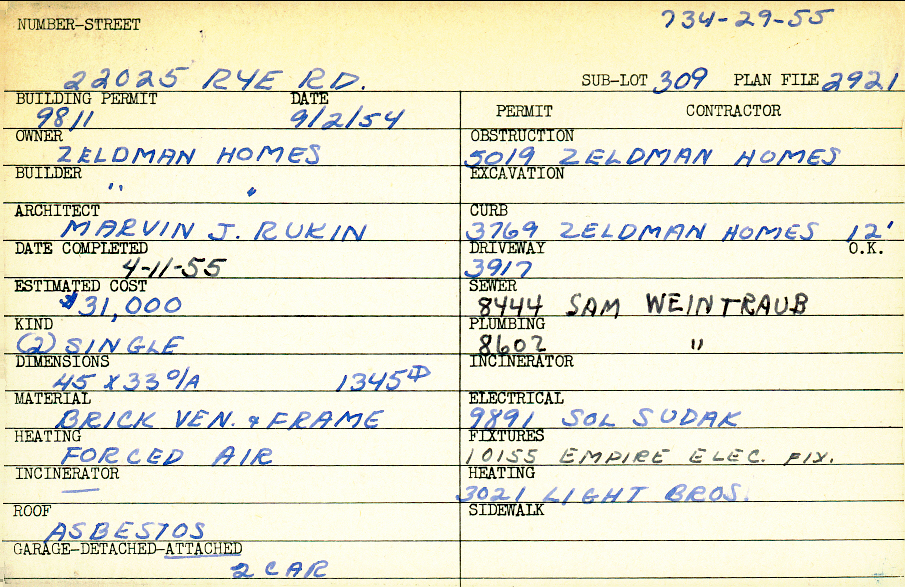 NUMBER-STREET 734-29-55
22025 RYE RD. SUB-LOT 309 PLAN FILE 2921
BUILDING PERMIT DATE
9811 9/2/54
OWNER
ZELDMAN HOMES
BUILDER
" "
ARCHITECT
MARVIN J. RUKIN
DATE COMPLETED
4-11-55
ESTIMATED COST
$31,000
KIND
(2) SINGLE
DIMENSIONS
45 X 33 O/A 1345
MATERIAL
BRICK VEN. & FRAME
HEATING
FORCED AIR
INCINERATOR
—
ROOF
ASBESTOS
GARAGE-DETACHED-ATTACHED
2 CAR
PERMIT CONTRACTOR
OBSTRUCTION
5019 ZELDMAN HOMES
EXCAVATION
CURB
3769 ZELDMAN HOMES 12'
DRIVEWAY O.K.
3917
SEWER
8444 SAM WEINTRAUB
PLUMBING
8602 "
INCINERATOR
ELECTRICAL
9891 SOL SUDAK
FIXTURES
10155 EMPIRE ELEC. FIX.
HEATING
3021 LIGHT BROS.
SIDEWALK